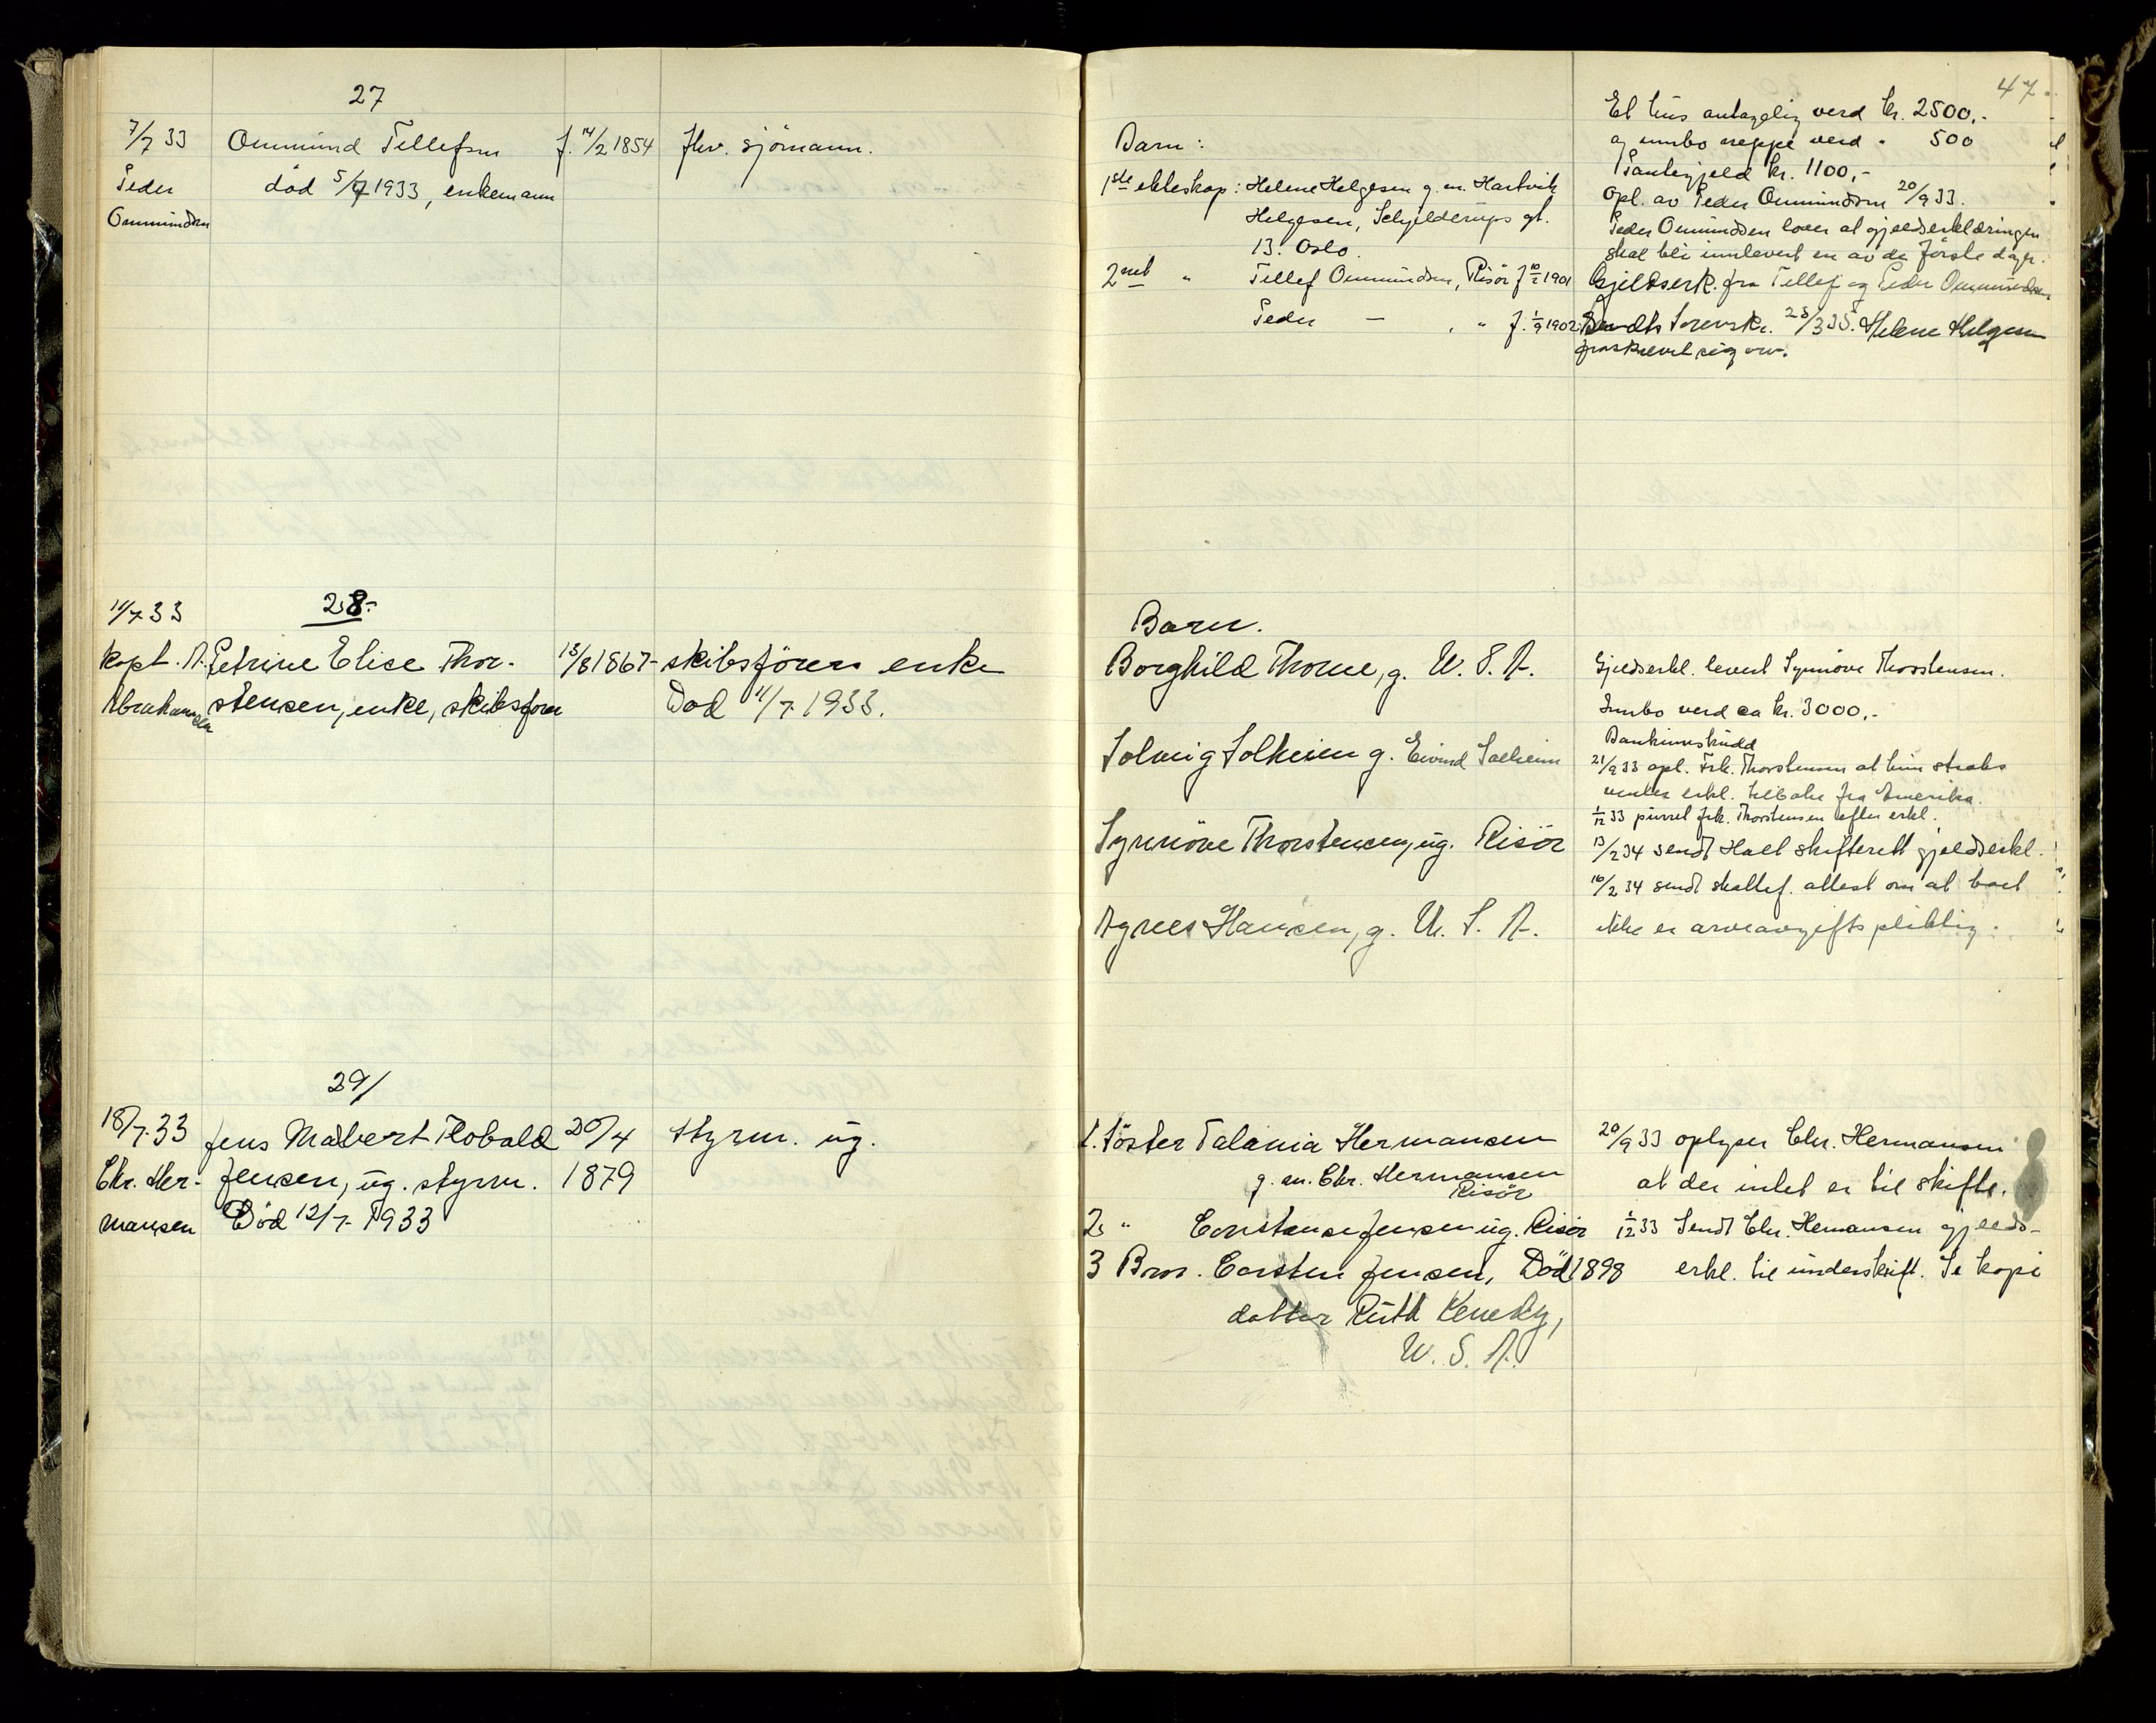 47.
27
7/7 33
Ommund Tellefsen
f. 14/2 1854
fhv. sjömann.
Peder
Ommundsen
död 5/7 1933, enkemann
Barn:
1ste ekteskap: Helene Helgesen g. m. Hartvik
Helgesen, Schjelderups gt.
13. Oslo.
2net " Tellef Ommundsen, Risör f. 10/2 1901
Peder — , " f. 1/9 1902.
Et hus antagelig verd kr. 2500,-
og innbo neppe verd " 500
Pantegjeld kr. 1100,-
Opl. av Peder Ommundsen 20/9 33.
Peder Ommundsen lover at gjeldserklæringen
skal bli innlevert en av de förste dager.
Gjeldserk. fra Tellef og Peder Ommundsen
Sendts Sorenskr. 28/3 35. Helene Helgesen
fraskrevet sig arv.
28-
11/7 33
kapt. A.
Abrahamsen
Petrine Elise Thor-
stensen, enke, skibsfører
13/8 1867-
skibsförers enke
Död 11/7 1933.
Barn.
Borghild Thorne, g. U. S. A.
Solveig Solheim g. Eivind Solheim
Synnöve Thorstensen, ug. Risör
Agnes Hansen, g. U. S. A.
Gjeldserkl. levert Synnöve Thorstensen.
Innbo verd ca kr. 3000,-
Bankinnskudd
21/9 33 opl. Frk. Thorstensen at hun straks
venter erkl. tilbake fra Amerika.
1/12 33 purret frk. Thorstensen efter erkl.
13/2 34 sendt Holt skifterett gjeldserkl.
16/2 34 sendt skattef. attest om at boet
ikke er arveavgiftspliktig.
29/
18/7 33
Chr. Her-
mansen
Jens Mabert Robald
Jensen, ug. styrm.
Död 12/7 1933
20/4
1879
Styrm. ug.
1. Söster Talania Hermansen
g. m. Chr. Hermansen
Risör
2. " Constance Jensen ug. Risör
3 Bror. Carsten Jensen, Död 1898
datter Ruth Kenedy,
U. S. A.
20/9 33 oplyser Chr. Hermansen
at der intet er til skifte.
1/12 33 Sendt Chr. Hermansen gjelds-
erkl. til underskrift. Se kopi